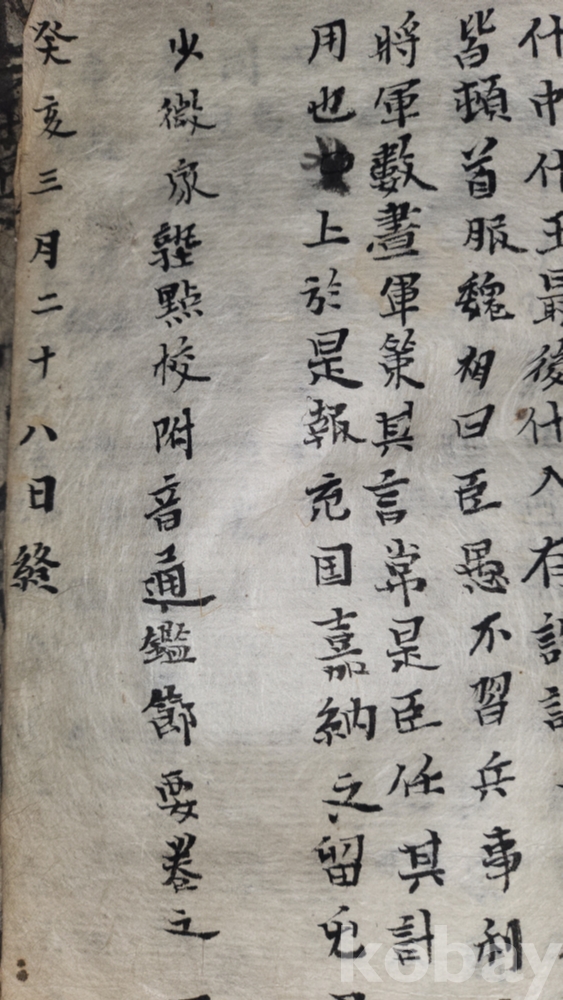 什中什五最後什八有詔詰
皆頓首服魏相曰臣愚不習兵事利
將軍數畫軍策其言常是臣任其計
用也上於是報充国嘉納之留兌
少微家塾點校附音通鑑節要卷之
癸亥三月二十八日終
kobay